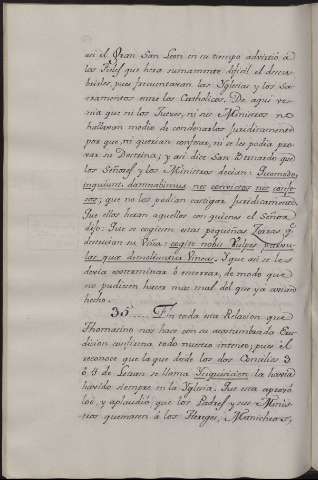 asi el Gran San Leon en su tiempo advirtió á
los Fieles que hera sumamente dificil el descu-
brirles, pues frecuentavan las Yglesias y los Sa-
cramentos entre los Catholicos. De aqui ve-
nia que ni los Jueces, ni sus Ministros no
hallavan modo de condenarlos Juridicamente
por que, ni querian confesar, ni se les podia pro-
var su Doctrina; y asi dice San Bernardo que
los Señores y los Ministros decian: Quomodo,
inquiunt, damnabimus nec convictos nec confe-
sos; que no les podian castigar Juridicamente.
Que ellos heran aquellos con quienes el Señor
dijo: Que se cogiesen estas pequeñas Zorras q.
destruian su Viña: capite nobis Vulpes parvu-
las quæ demoliuntur Vineas. Y que asi se les
devia exterminar ó encerrar, de modo que
no pudiesen hacer mas mal del que ya avian
hecho.
35 En toda esta Relacion que
Thomasino nos hace con su acostumbrada Eru-
dicion confirma todo nuestro intento, pues él
reconoce que la que desde los dos Concilios 3
ó 4 de Letran se llama Ynquisicion la havia
havido siempre en la Yglesia. Que esta aprovó
loó, y aplaudió que los Padres y sus Minis-
tros quemasen á los Hereges, Manicheos,